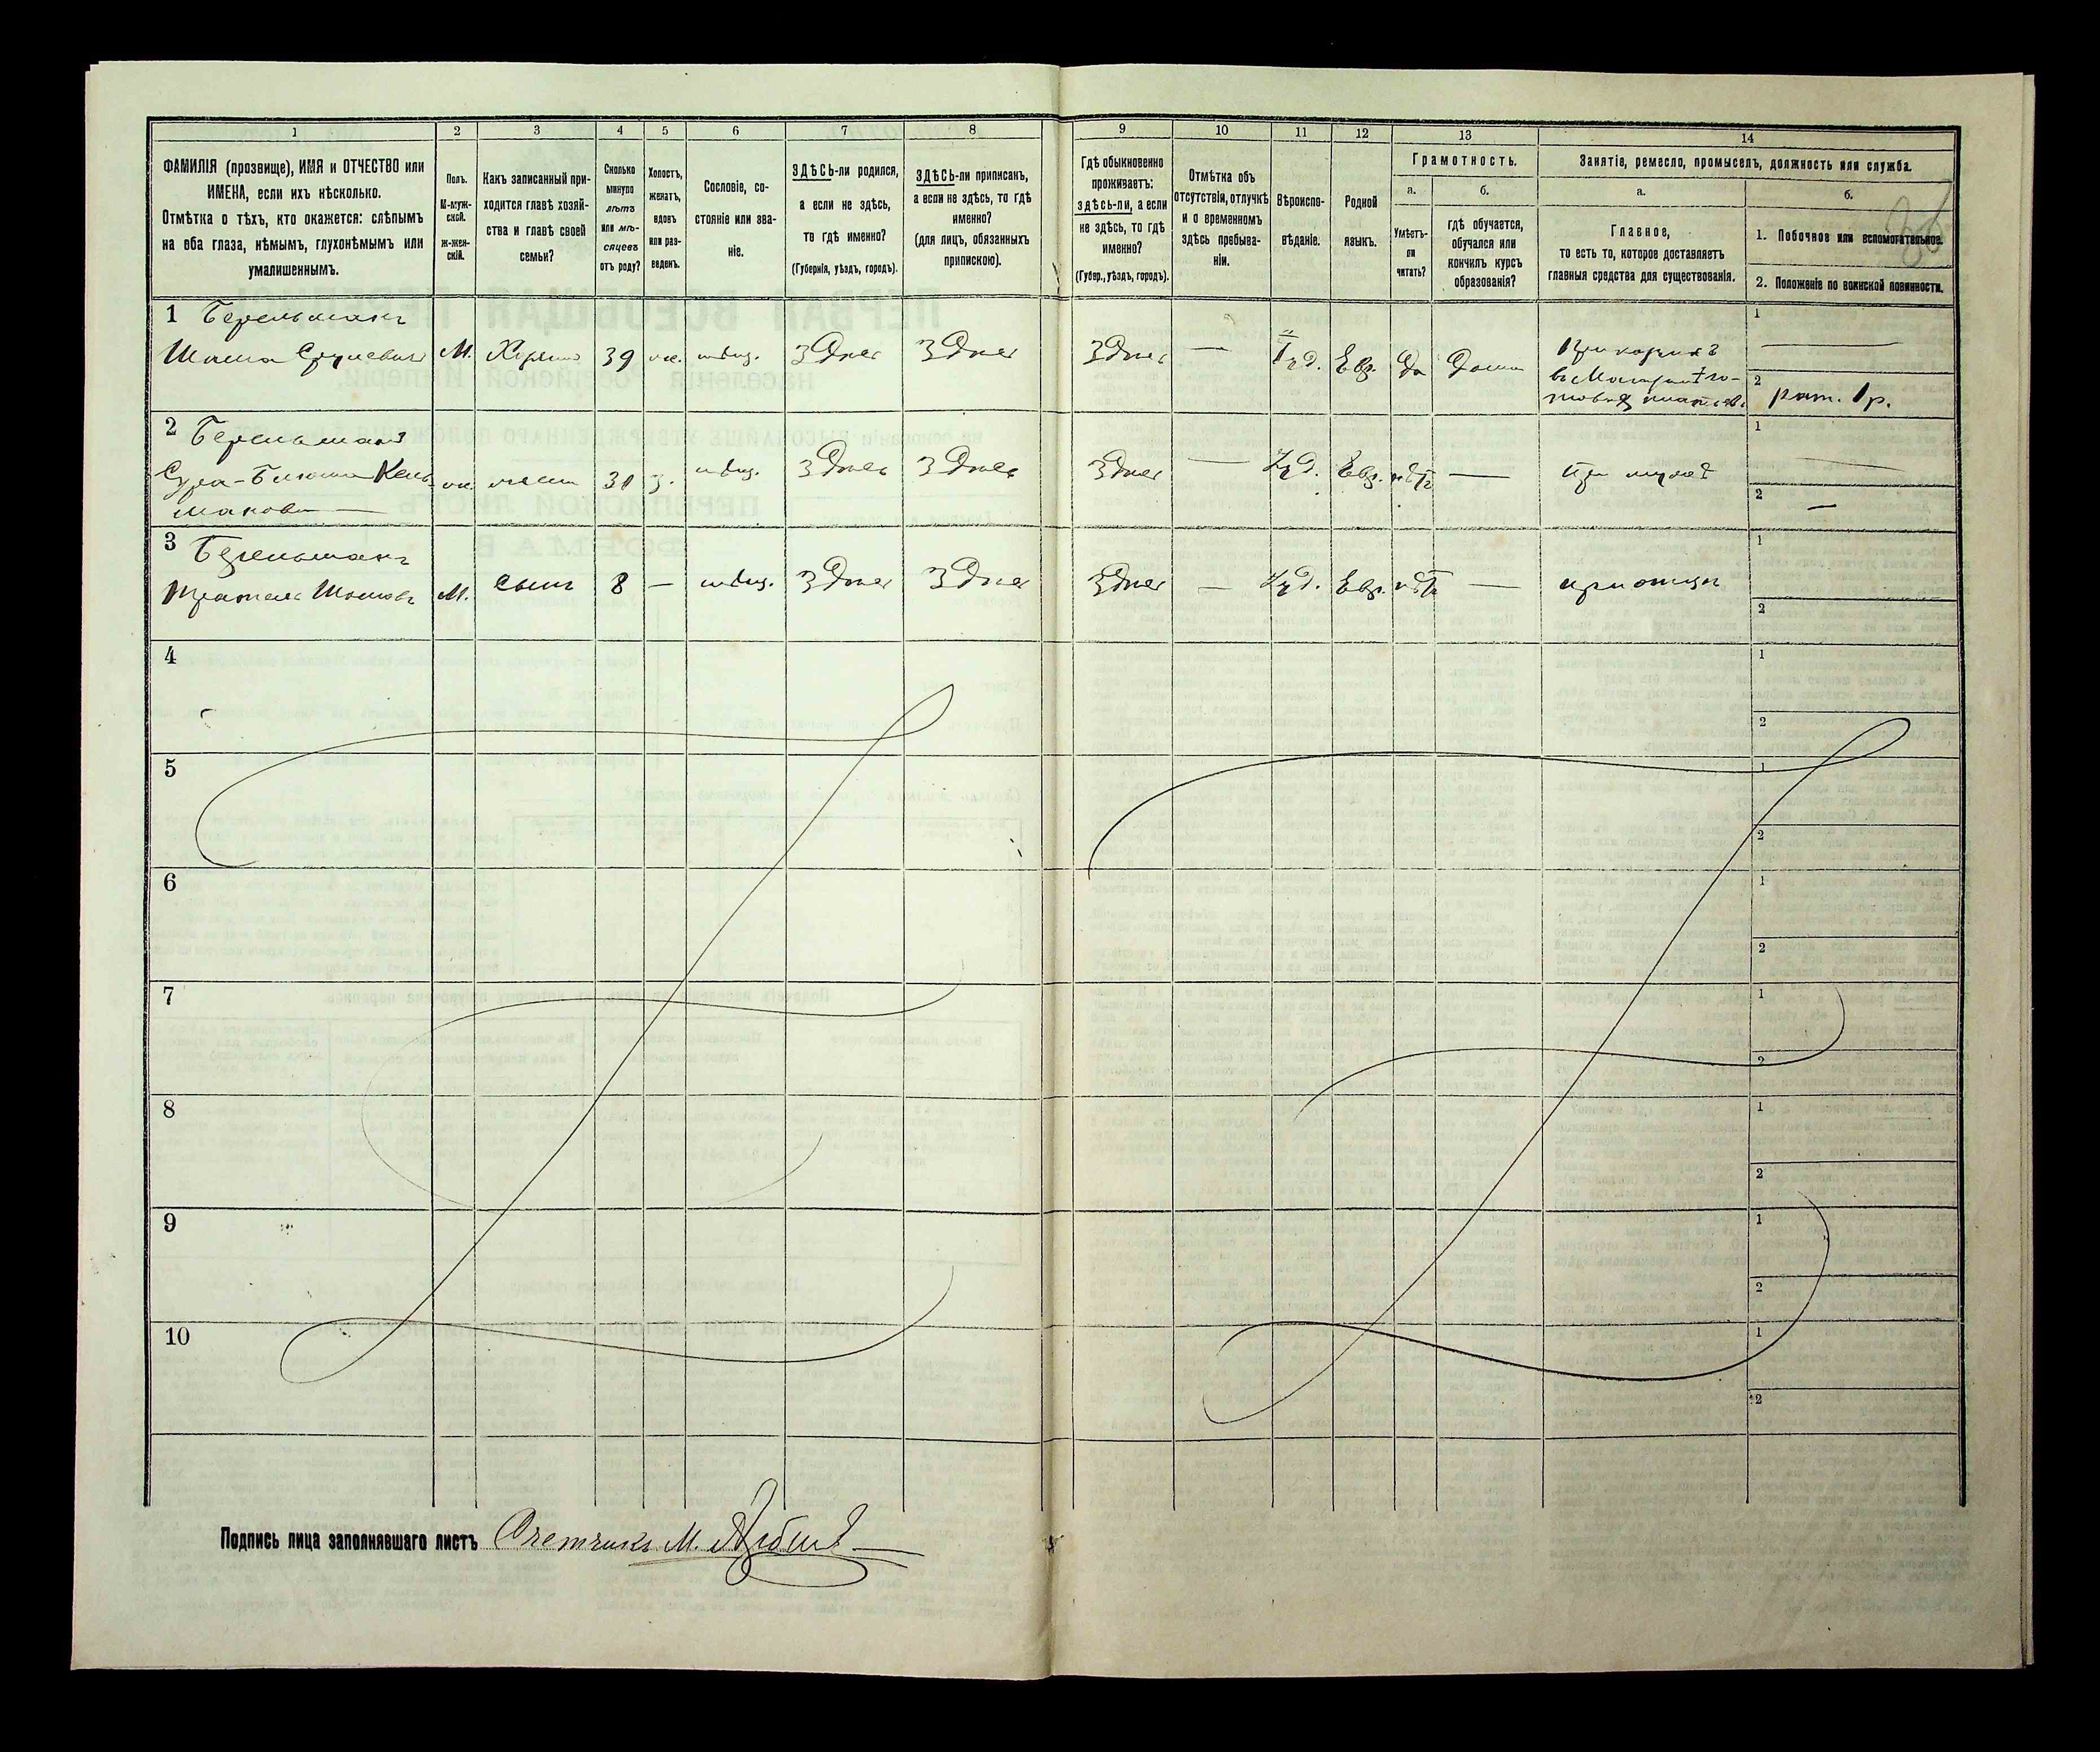 1 2 3 4 5 6 7 8
ФАМИЛІЯ (прозвище), ИМЯ и ОТЧЕСТВО или
ИМЕНА, если ихъ нѣсколько.
Отмѣтка о тѣхъ, кто окажется: слѣпымъ
на оба глаза, нѣмымъ, глухонѣмымъ или
умалишеннымъ.
Полъ.
М-муж-
ской.
ж-жен-
скій.
Какъ записанный при-
ходится главѣ хозяй-
ства и главѣ своей
семьи?
Сколько
минуло
лѣтъ
или мѣ-
сяцевъ
отъ роду?
Холостъ,
женатъ,
вдовъ
или раз-
веденъ.
Сословіе, со-
стояніе или зва-
ніе.
ЗДѢСЬ-ли родился,
а если не здѣсь,
то гдѣ именно?
(Губернія, уѣздъ, городъ).
ЗДѢСЬ-ли приписанъ,
а если не здѣсь, то гдѣ
именно?
(для лицъ, обязанныхъ
припискою).
9 10 11 12 13 14
Гдѣ обыкновенно
проживаетъ:
здѣсь-ли, а если
не здѣсь, то гдѣ
именно?
(Губер., уѣздъ, городъ).
Отмѣтка объ
отсутствіи, отлучкѣ
и о временномъ
здѣсь пребыва-
ніи.
Вѣроиспо-
вѣданіе.
Родной
языкъ.
Грамотность.
а.
Умѣетъ-
ли
читать?
б.
гдѣ обучается,
обучался или
кончилъ курсъ
образованія?
Занятіе, ремесло, промыселъ, должность или служба.
а.
Главное,
то есть то, которое доставляетъ
главныя средства для существованія.
б.
1. Побочное или вспомогательное.
2. Положеніе по воинской повинности.
1 Берельманъ
М. 39 мѣщ. Здѣсь Здѣсь Здѣсь — Іуд. Евр. Да Дома
1 —
2 рат. 1 р.
2 Берельманъ
31 з. мѣщ. Здѣсь Здѣсь Здѣсь — Іуд. Евр. нѣтъ — при мужѣ
1 —
2 —
3 Берельманъ
М. сынъ 8 — мѣщ. Здѣсь Здѣсь Здѣсь — Іуд. Евр. нѣтъ — при отцѣ
1
2
4
1
2
5
1
2
6
1
2
7
1
2
8
1
2
9
1
2
10
1
2
Подпись лица заполнявшаго листъ Счетчикъ М.